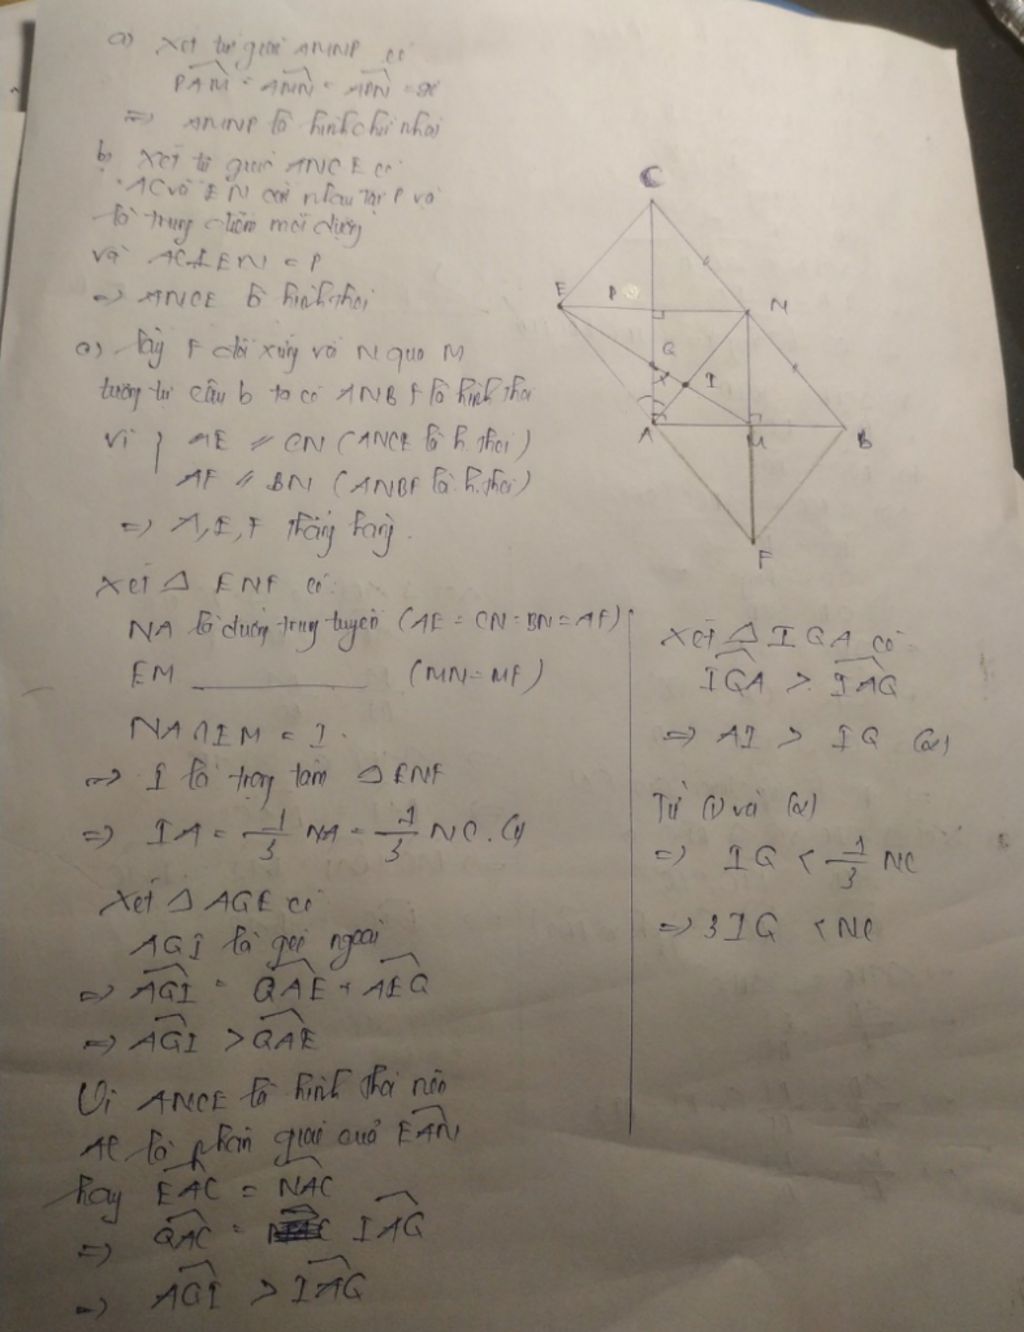 a) Xét tứ giác AMNP có
PAM = AMN = APN = 90°
=> AMNP là hình chữ nhật
b) Xét tứ giác ANCE có
AC và EN cắt nhau tại P và
là trung điểm mỗi đường
và AC ⊥ EN = P
=> ANCE là hình thoi
c) Lấy F đối xứng với N qua M
tương tự câu b ta có ANBF là hình thoi
Vì { AE // CN (ANCE là h.thoi)
AF // BN (ANBF là h.thoi)
=> A, E, F thẳng hàng.
Xét △ ENF có:
NA là đường trung tuyến (AE = CN = BN = AF)
EM ________ (MN = MF)
NA ∩ EM = I.
=> I là trọng tâm △ ENF
=> IA = 1/3 NA = 1/3 NC. (1)
Xét △ AGE có
AGI là góc ngoài
=> AGI = GAE + AEG
=> AGI > GAE
Vì ANCE là hình thoi nên
AC là phân giác của EAN
hay EAC = NAC
=> GAC = IAG
=> AGI > IAG
Xét △ IGA có
IGA > IAG
=> AI > IG (2)
Từ (1) và (2)
=> IG < 1/3 NC
=> 3IG < NC
C
E
P
N
G
I
A
M
B
F